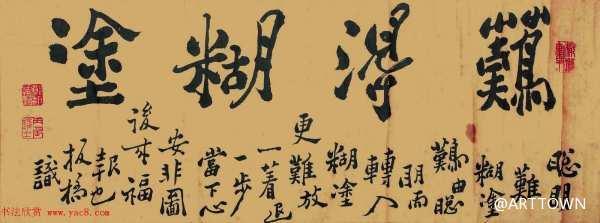 難得糊塗
聰明
難
糊塗
難由聰
明而
轉入
糊塗
更難放
一著退
一步
當下心
安非圖
後來福
報也
板橋
識
书法欣赏 www.yac8.com
@ARTTOWN